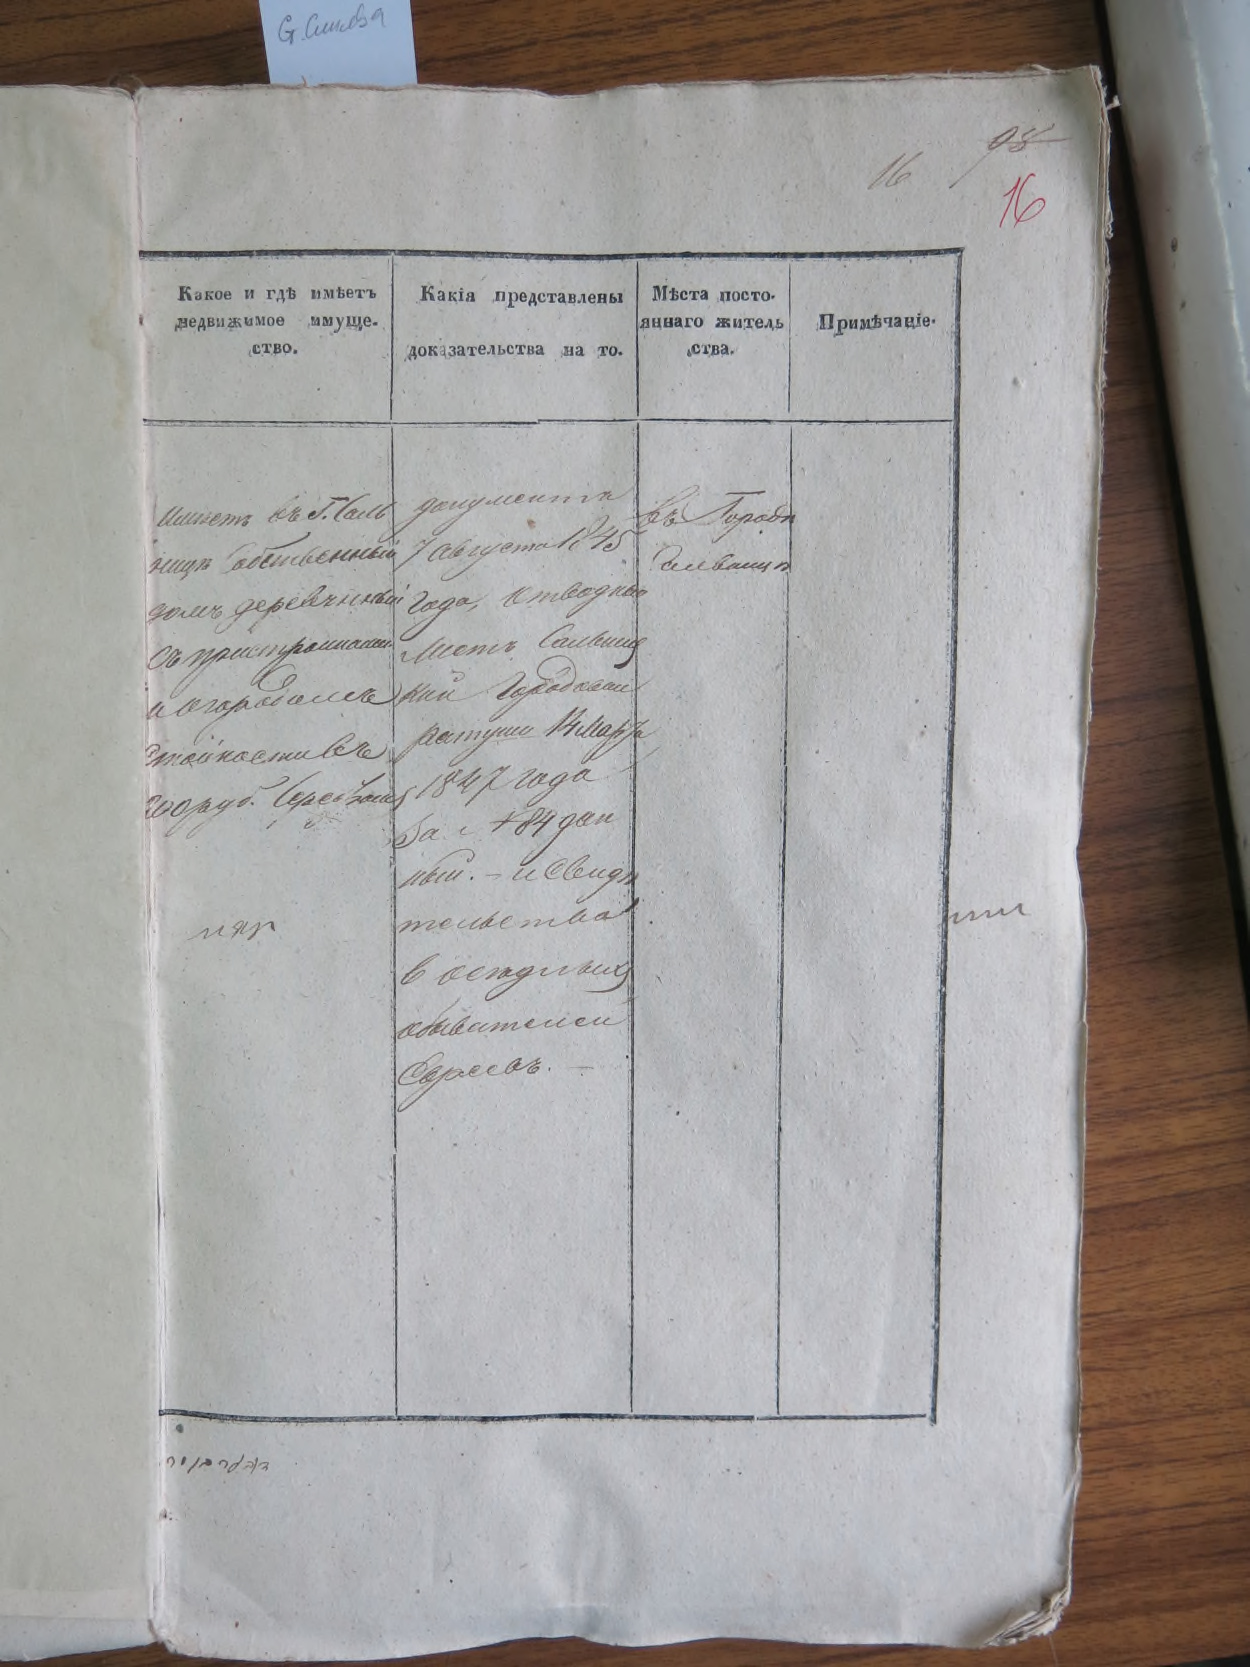 98
16
16
Какое и гдѣ имѣетъ
недвижимое имуще-
ство.
Какія представлены
доказательства на то.
Мѣста посто-
яннаго житель
ства.
Примѣчаніе.
Имѣетъ въ г. Саль
ницѣ собственный
домъ деревянный
съ пристройками
и огородомъ
стоимостивъ
руб. серебромъ
документъ
7 августа 1845
года, отводный
листъ Сальниц
кой Городовой
ратуши 14 марта
1847 года
За № 84 дан
ный. – и свидѣ
тельства
осѣдлыхъ
обывателей
Евреевъ. –
въ Городѣ
Сальницѣ